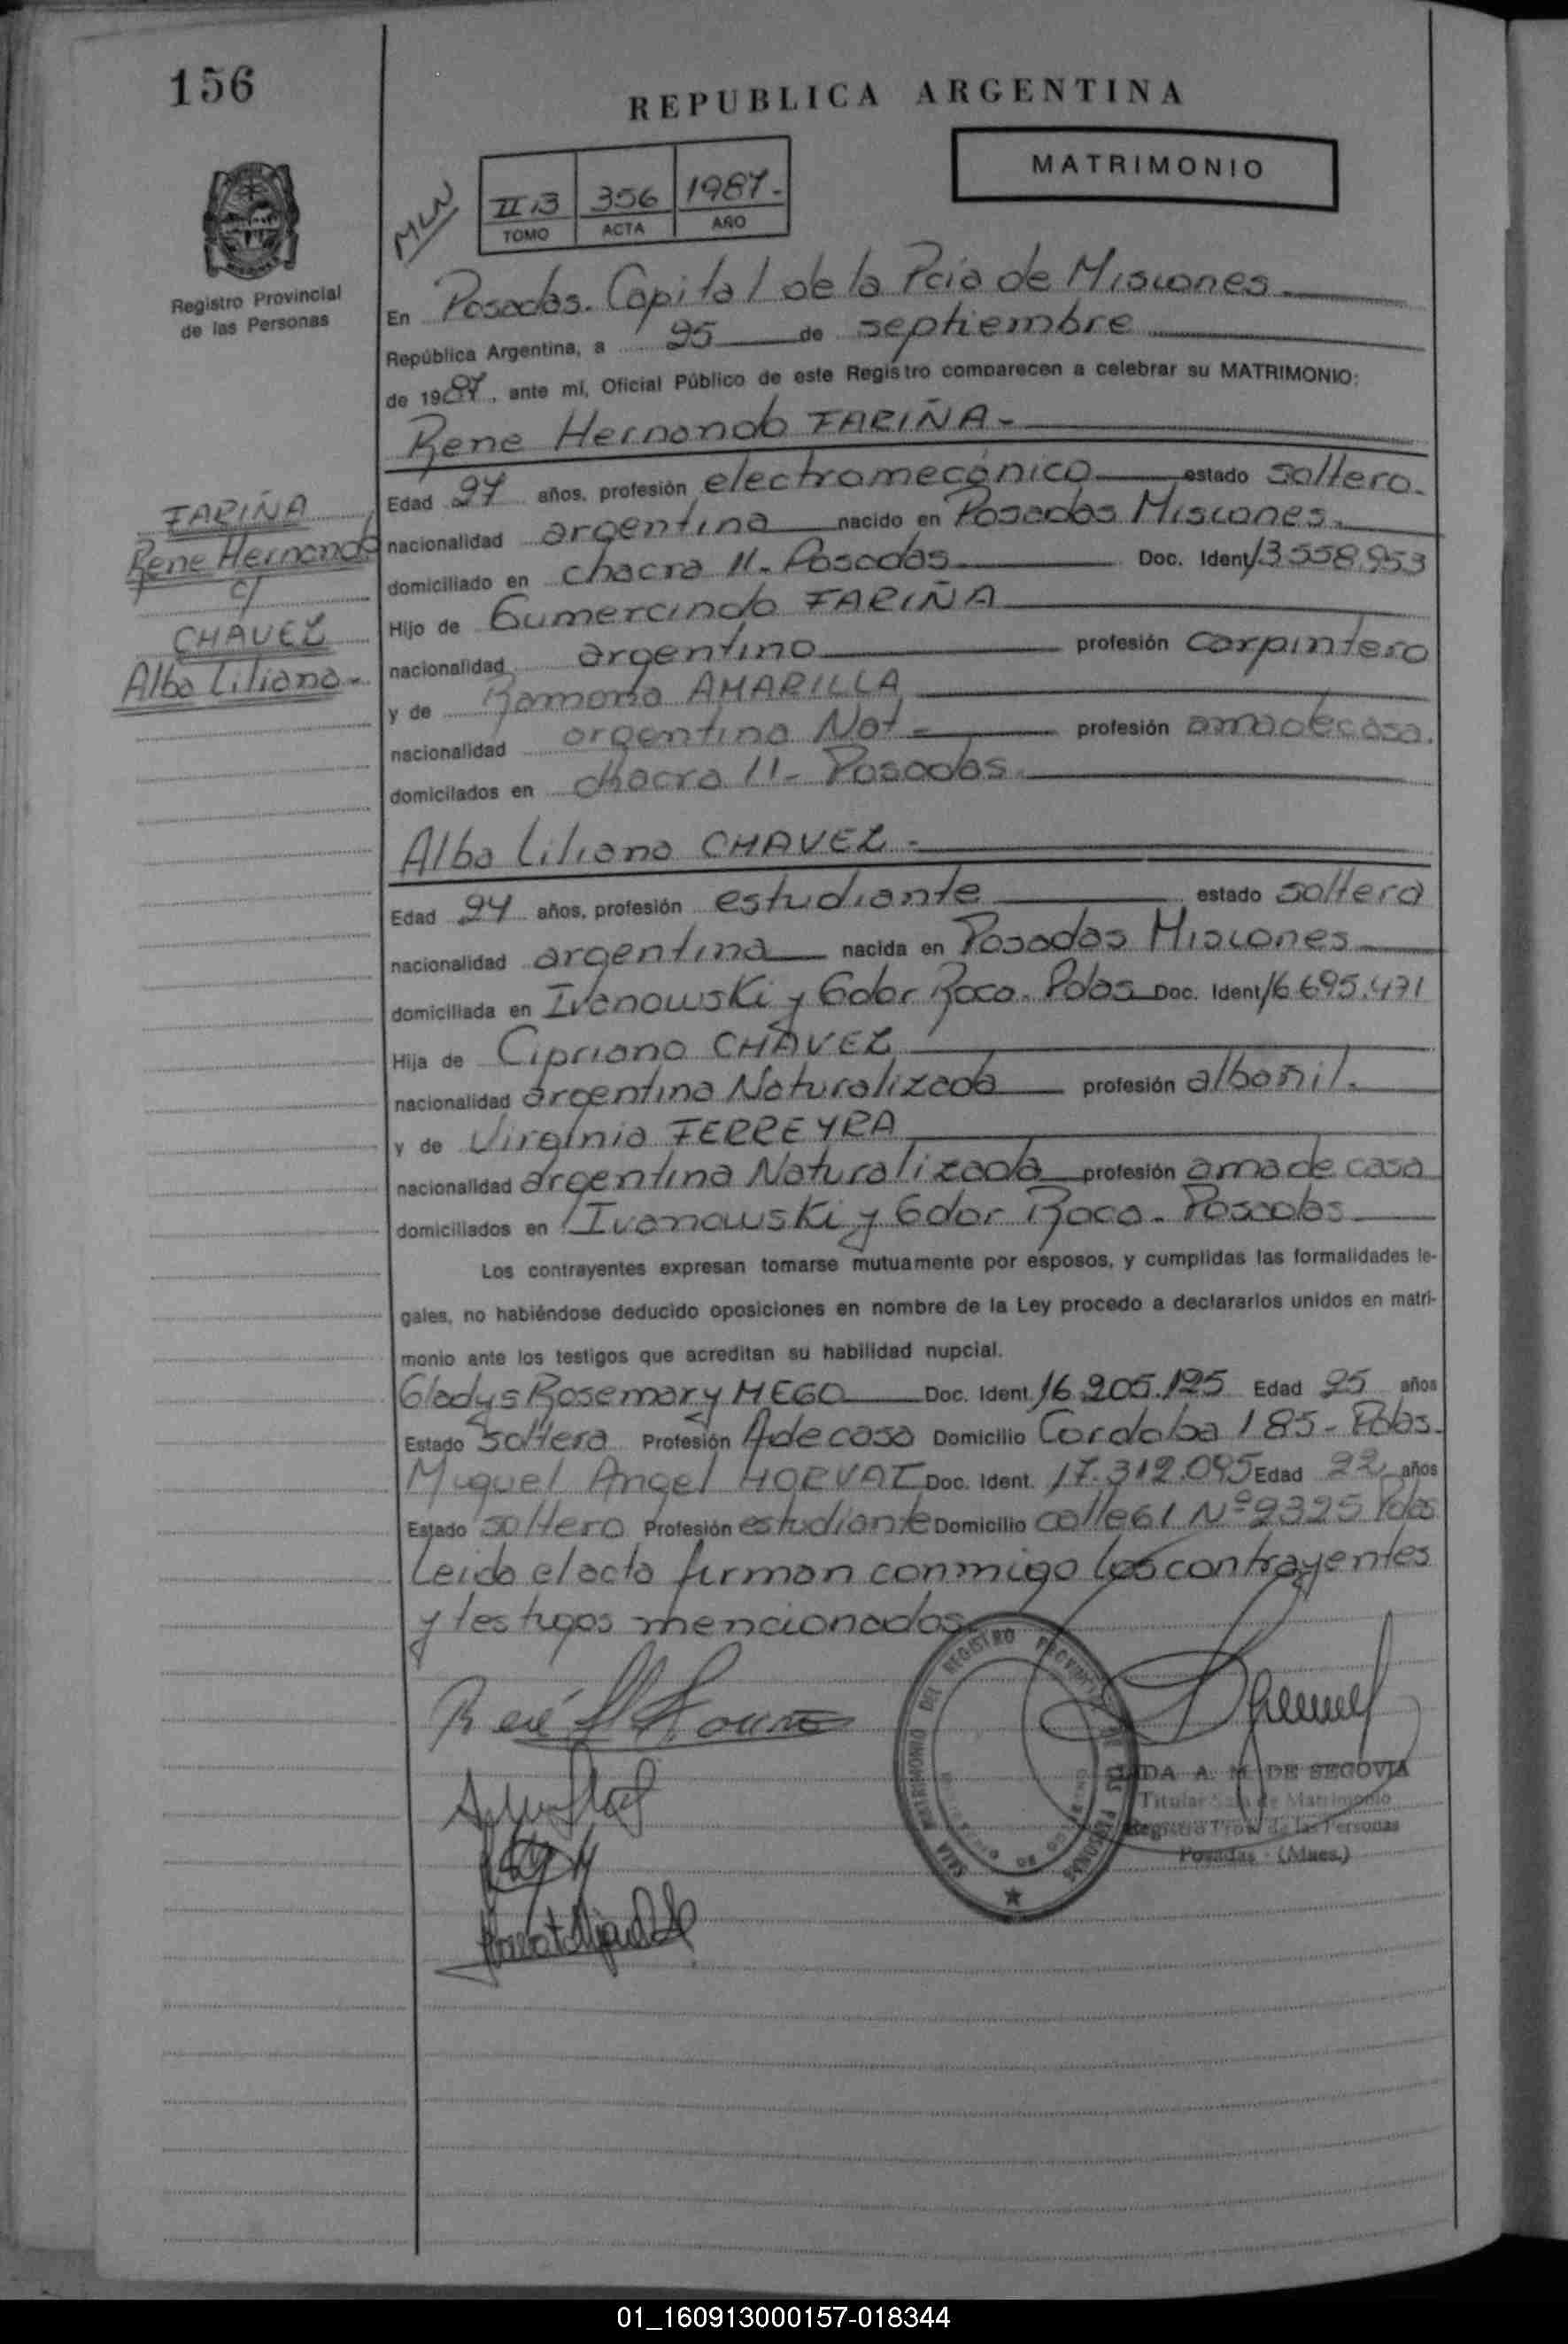 156
REPUBLICA ARGENTINA
MATRIMONIO
MLN
II B 356 1987.-
TOMO ACTA AÑO
Registro Provincial
de las Personas
En Posadas. Capital de la Pcia de Misiones
República Argentina, a 25 de septiembre
de 1987, ante mí, Oficial Público de este Registro comparecen a celebrar su MATRIMONIO:
Rene Hernando FARIÑA-
FARIÑA
Rene Hernando
c/
CHAVEZ
Alba Liliana-
Edad 27 años, profesión electromecánico estado soltero.
nacionalidad argentina nacido en Posadas Misiones.
domiciliado en chacra 11.- Posadas Doc. Ident 13.558.953
Hijo de Gumercindo FARIÑA
nacionalidad argentino profesión carpintero
y de Ramona AMARILLA
nacionalidad argentina Nat- profesión ama de casa.
domicilados en chacra 11- Posadas.
Alba Liliana CHAVEZ-
Edad 24 años, profesión estudiante estado soltera
nacionalidad argentina nacida en Posadas Misiones
domiciliada en Ivanowski y Gdor Roca. Pdas Doc. Ident 16.695.471
Hija de Cipriano CHAVEZ
nacionalidad argentino Naturalizado profesión albañil.
y de Virginia FERREYRA
nacionalidad argentina Naturalizada profesión ama de casa
domiciliados en Ivanowski y Gdor Roca- Posadas
Los contrayentes expresan tomarse mutuamente por esposos, y cumplidas las formalidades le-
gales, no habiéndose deducido oposiciones en nombre de la Ley procedo a declararlos unidos en matri-
monio ante los testigos que acreditan su habilidad nupcial.
Gladys Rosemary MEGO Doc. Ident. 16.205.125 Edad 25 años
Estado soltera Profesión A de casa Domicilio Cordoba 185- Pdas.
Miguel Angel HORVAT Doc. Ident. 17.312.095 Edad 22 años
Estado soltero Profesión estudiante Domicilio calle 61 Nº 2325 Pdas
Leida el acta firman conmigo los contrayentes
y testigos mencionados
SALA MATRIMONIO DEL REGISTRO PROVINCIAL DE LAS PERSONAS
René
DA A. M. DE SEGOVIA
Titular Sala de Matrimonio
Registro Prov. de las Personas
Posadas - (Mnes.)
01_160913000157-018344